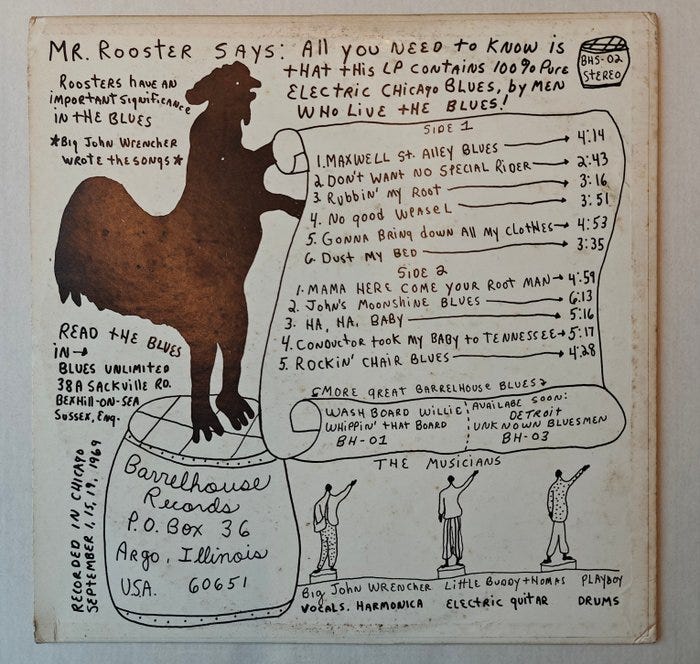 MR. ROOSTER SAYS: All you NEED to KNOW is
tHAt tHis LP CONTAiNS 100% PuRE
ELECTRiC CHiCAgo BLUES, by MEN
WHO LivE tHE BLUES!
BHS-02
STEREO
RoostERs HAVE AN
iMPORTANT SigNificANCE
iN tHE BLUES
*Big JOHN WRENCHER
WROTE tHE SONgS*
SiDE 1
1. MAXWELL St. AllEy BLUES → 4:14
2. DoN't WANT NO SPECiAL RiDER → 2:43
3. RUbbiN' My Root → 3:16
4. No good WEASEL → 3:51
5. GONNA BRiNg DowN All My CLOtHES → 4:53
6. Dust My BED → 3:35
SiDE 2
1. MAMA HERE COME YOUR Root MAN → 4:59
2. JOHN'S MOONSHiNE BLUES → 6:13
3. HA, HA, BABy → 5:16
4. CONDUCTOR took My BABy to TENNESSEE → 5:17
5. ROCKiN' CHAiR BLUES → 4:28
READ tHE BLUES
iN →
BLUES UNLiMitED
38A SACKVillE RD.
BEXHill-ON-SEA
SUSSEX, ENg.
MORE gREAt BARRELHOUSE BLUES
WASH BOARD WilliE
WHiPPiN' tHAt BOARD
BH-01
AVAiLABLE SOON:
DEtROit
UNKNOWN BLUESMEN
BH-03
RECORDED iN CHiCAgo
SEPTEMBER 1, 15, 19, 1969
Barrelhouse
Records
P.O. Box 36
Argo, Illinois
USA. 60651
THE MUSiCiANS
Big JOHN WRENCHER
VOCALS. HARMONiCA
LittLE BuDDy tHOMAS
ELECtRiC guitAR
PLAYboy
DRUMS